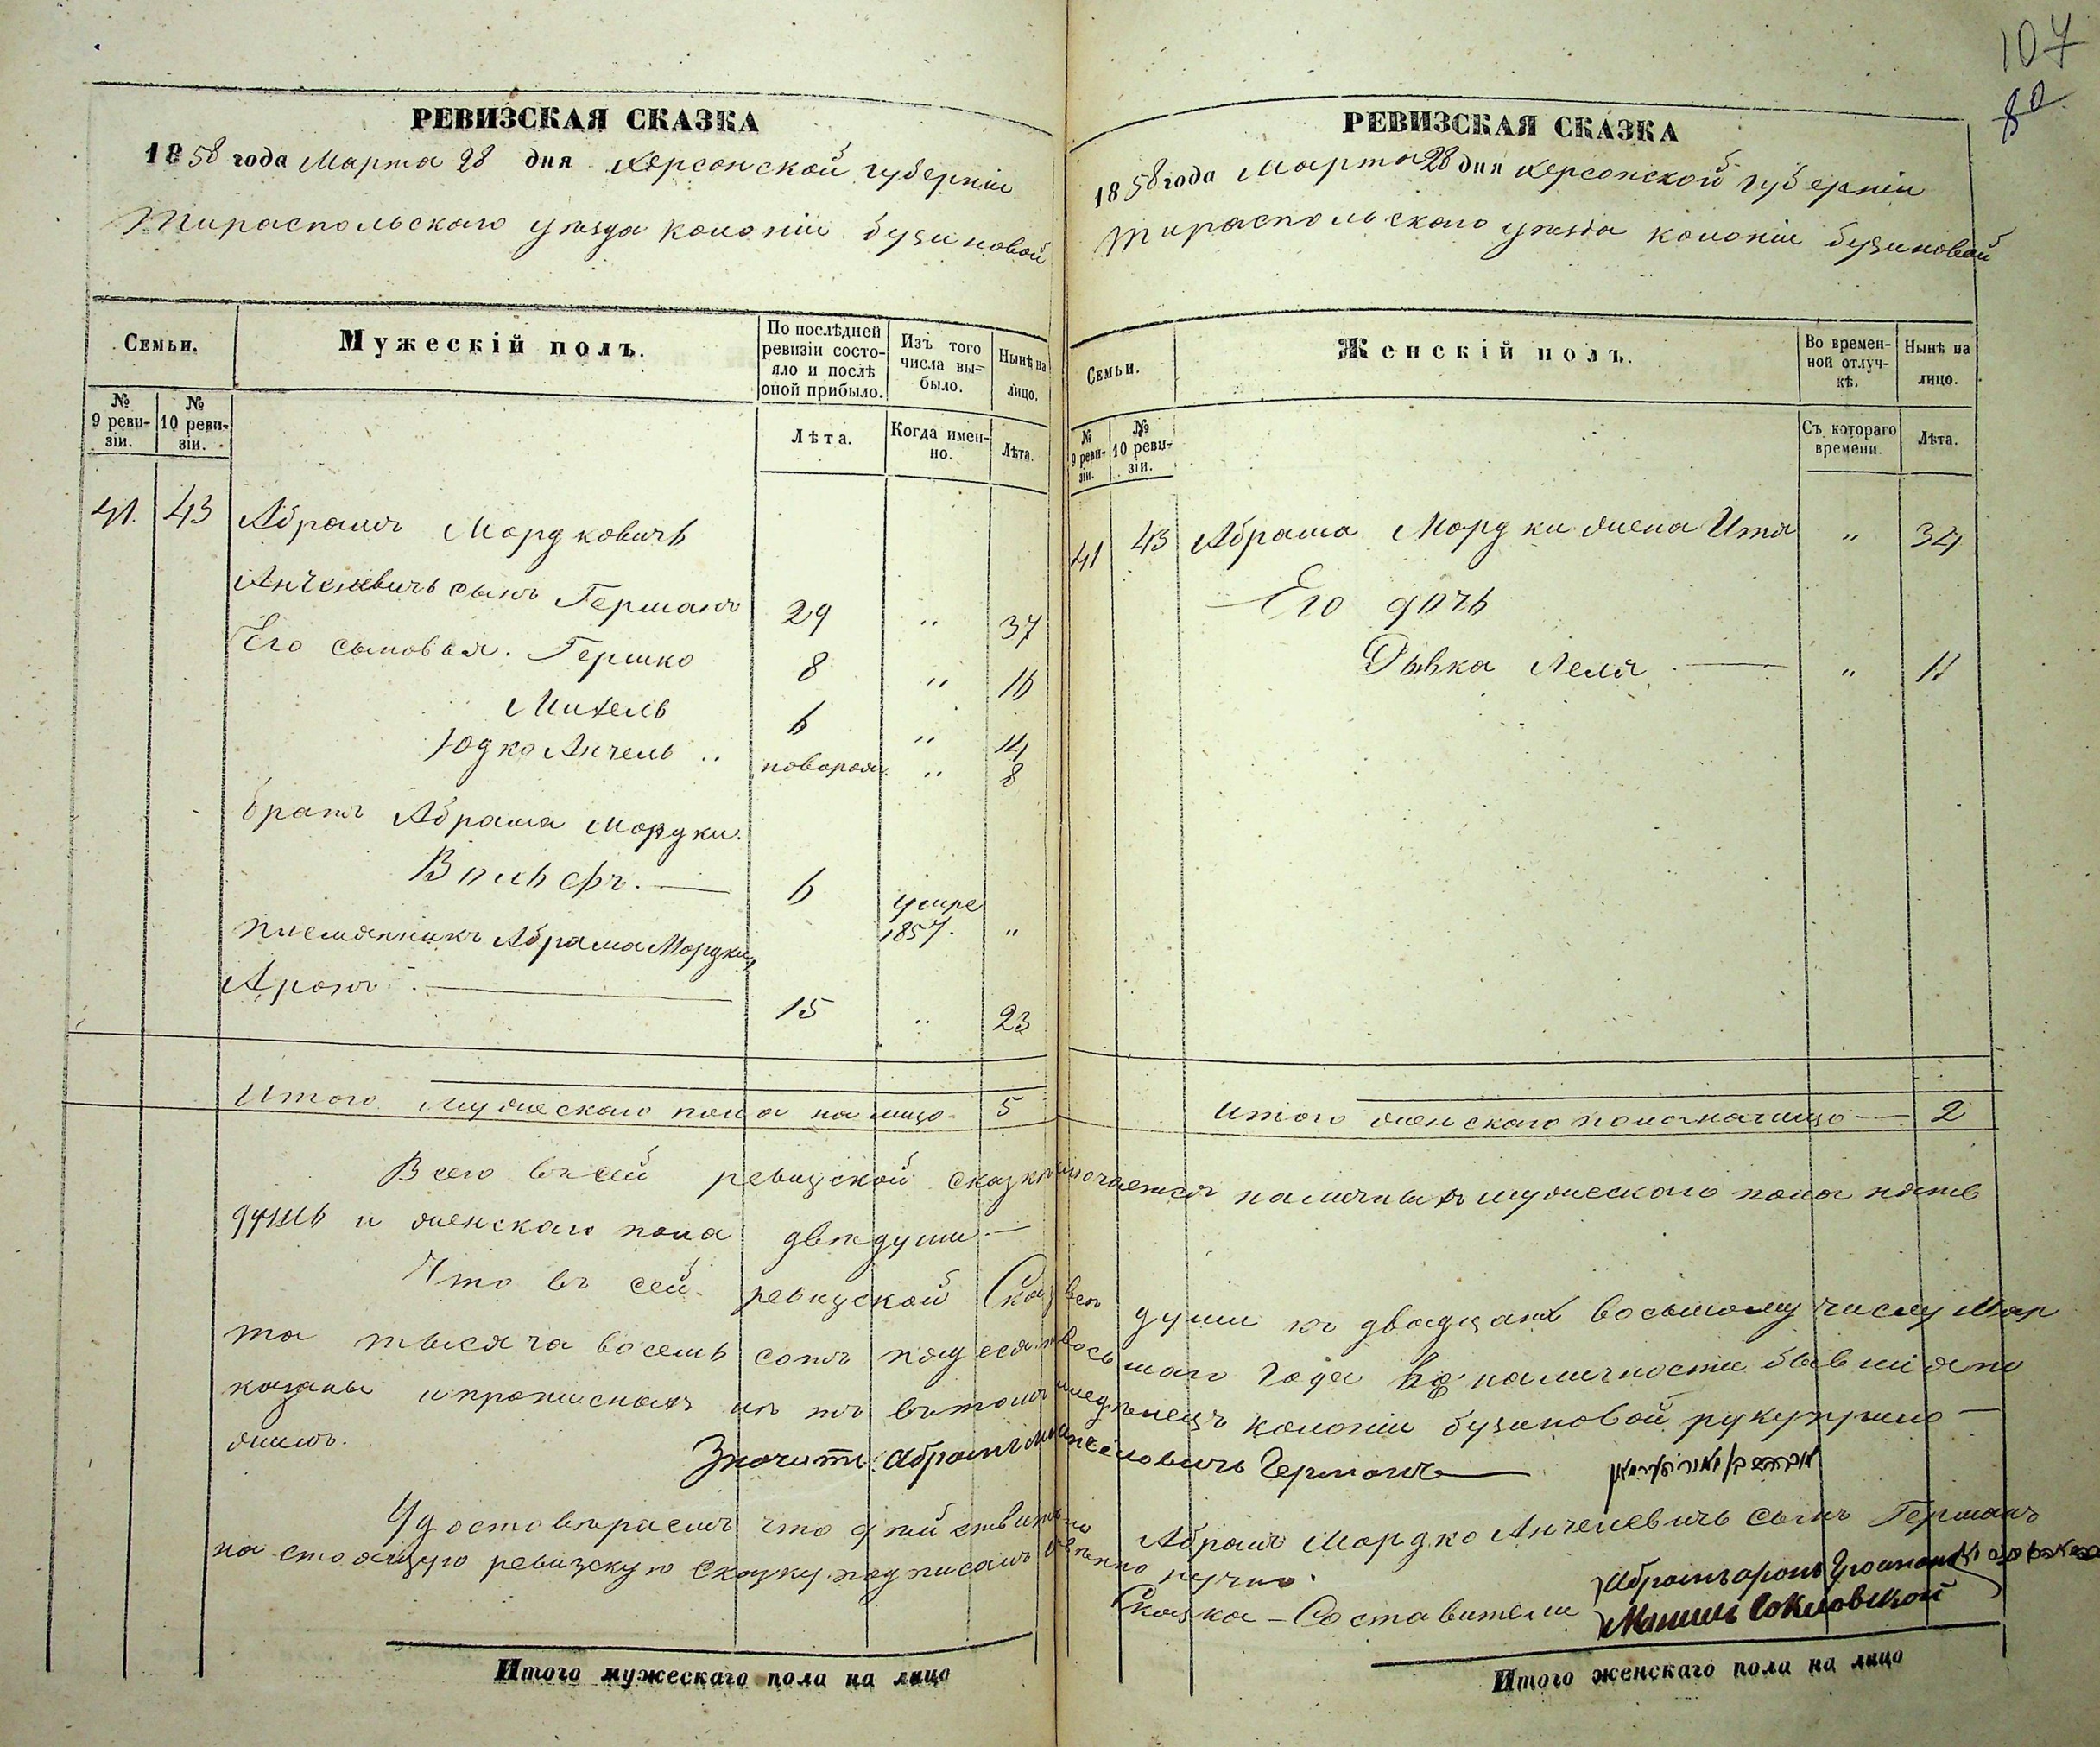 107
80
РЕВИЗСКАЯ СКАЗКА
1858 года Марта 28 дня Херсонской губерніи
Тираспольскаго уѣзда колоніи бузиновой
Семьи.
Мужескій полъ.
По послѣдней ревизіи состояло и послѣ оной прибыло.
Изъ того числа выбыло.
Нынѣ на лицо.
№ 9 ревизіи.
№ 10 ревизіи.
Лѣта.
Когда именно.
Лѣта.
41. 43 Абрамъ Мордковичъ
Анчелевичъ сынъ Германъ 29 " 37
Его сыновья. Гершко 8 " 16
Михель 6 " 14
Юдко Анчель .. новорож. " 8
братъ Абрама Мордки.
Вольфъ. — 6 умре 1857. "
племянникъ Абрама Мордки,
Аронъ — 15 " 23
Итого мужескаго пола на лицо 5
РЕВИЗСКАЯ СКАЗКА
1858 года Марта 28 дня Херсонской губерніи
Тираспольскаго уѣзда колоніи бузиновой
Семьи.
Женскій полъ.
Во временной отлучкѣ.
Нынѣ на лицо.
№ 9 ревизіи.
№ 10 ревизіи.
Съ котораго времени.
Лѣта.
41 43 Абрама Мордки жена Итя " 34
Его дочь
Рывка Леля — " 11
Итого женскаго пола на лицо — 2
Всего въ сей ревизской сказкѣ наличныхъ мужескаго пола пять
душъ и женскаго пола двѣ души. —
Что въ сей ревизской Сказкѣ всѣ души къ двадцать восьмому числу Мар
та тысяча восемь сотъ пятьдесятъ восьмаго года въ наличности бывшія по
казаны и прописныхъ нѣтъ въ томъ колоніи бузиновой руку прило —
жилъ.
Абрамъ Германъ
Удостовѣряемъ что дѣйствительно Абрамъ Мордко Анчелевичъ сынъ Германъ
настоящую ревизскую Сказку подписалъ собственно ручно.
Сказко-Составители
Абрамъ Аронъ
Итого мужескаго пола на лицо
Итого женскаго пола на лицо